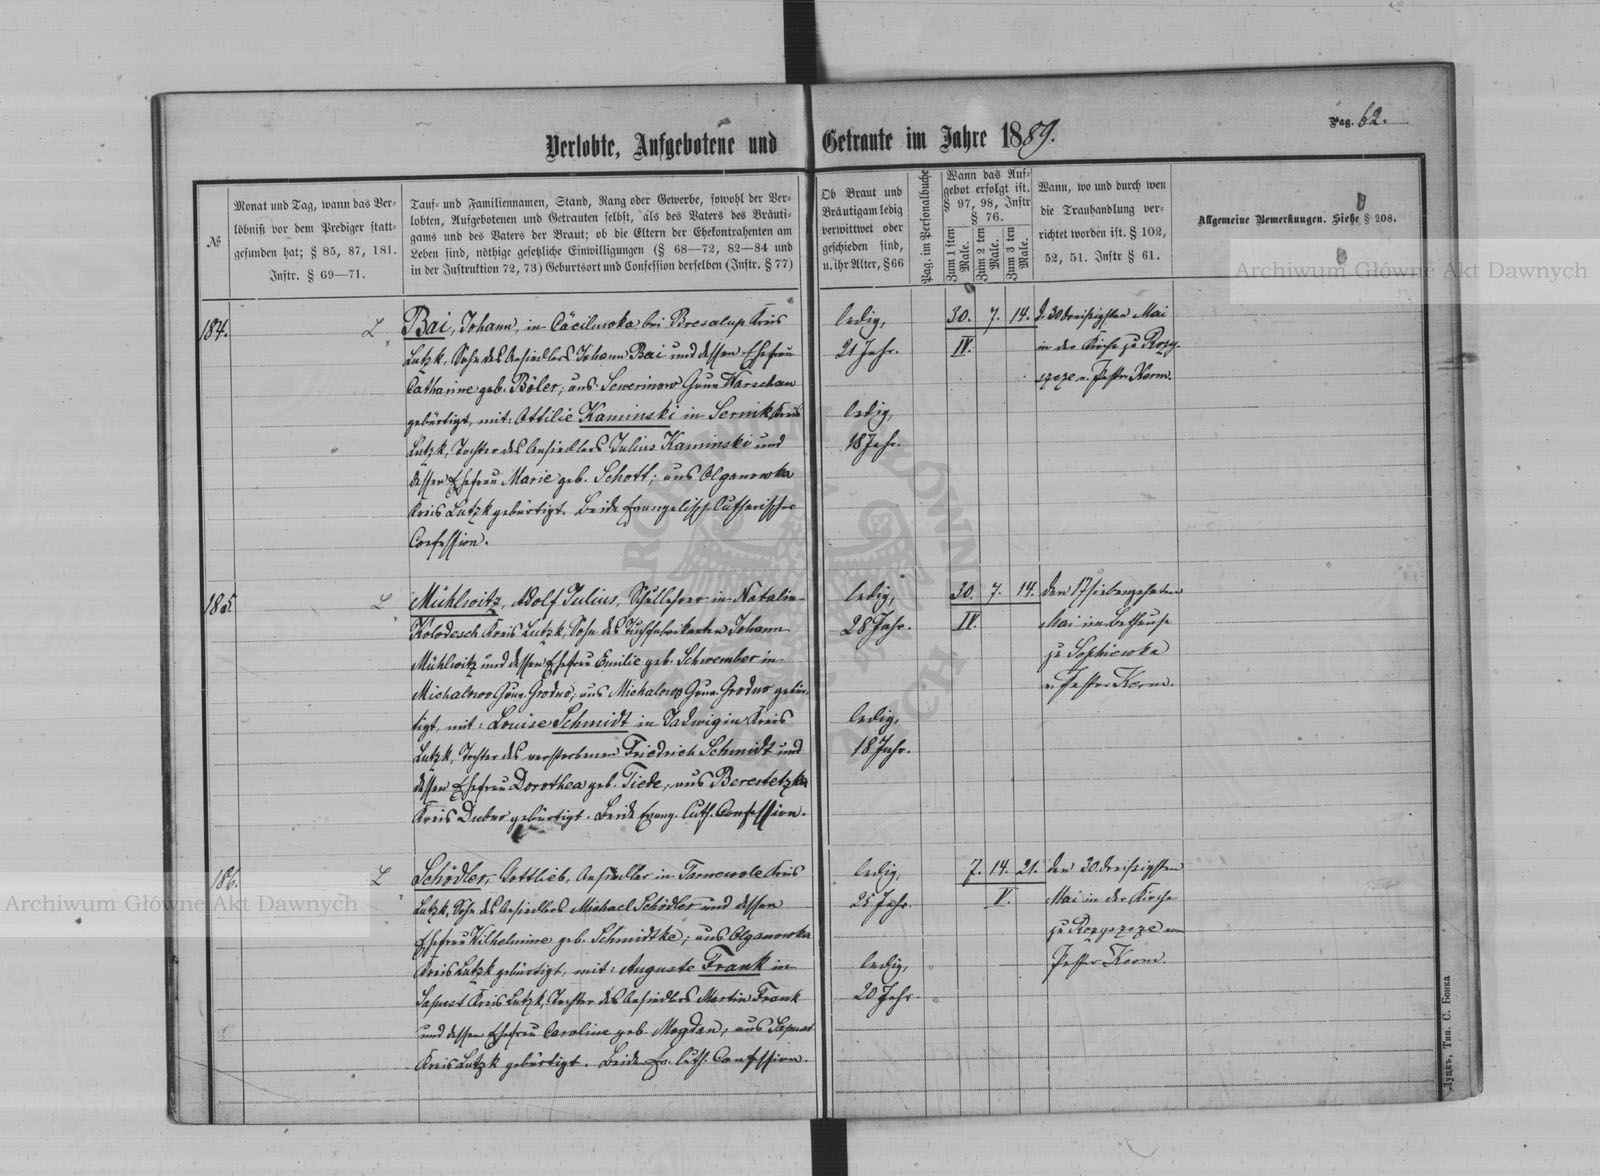 Pag. 62.
Verlobte, Aufgebotene und Getraute im Jahre 1889.
№
Monat und Tag, wann das Ver-
löbniß vor dem Prediger statt-
gefunden hat; § 85, 87, 181.
Instr. § 69—71.
Tauf- und Familiennamen, Stand, Rang oder Gewerbe, sowohl der Ver-
lobten, Aufgebotenen und Getrauten selbst, als des Vaters des Bräuti-
gams und des Vaters der Braut; ob die Eltern der Ehekontrahenten am
Leben sind, nöthige gesetzliche Einwilligungen (§ 68—72, 82—84 und
in der Instruktion 72, 73) Geburtsort und Confession derselben (Instr. § 77)
Ob Braut und
Bräutigam ledig
verwittwet oder
geschieden sind,
u. ihr Alter, § 66
Pag. im Personalbuche
Wann das Auf-
gebot erfolgt ist.
§ 97, 98, Instr
§ 76.
Zum 1 sten Male.
Zum 2 ten Male.
Zum 3 ten Male.
Wann, wo und durch wen
die Trauhandlung ver-
richtet worden ist. § 102,
52, 51. Instr § 61.
Allgemeine Bemerkungen. Siehe § 208.
184.
L
Bai, Johann, in Cäcilowka bei Kreis
Lutzk, Sohn des Ansiedlers Johann Bai und dessen Ehefrau
Catharine geb. Böler; aus Sewerinow Gouv. Warschau
gebürtigt, mit: Ottilie Kaminski in Sernik Kreis
Lutzk, Tochter des Ansiedlers Julius Kaminski und
dessen Ehefrau Marie geb. Schott; aus Olganowka
Kreis Lutzk gebürtigt. Beide Evangelisch-lutherischer
Confession.
ledig,
21 Jahr.
ledig,
18 Jahr.
30. 7. 14.
IV.
d. 30 dreißigsten Mai
in der Kirche zu Rozy-
szcze v. Pastor Kerm.
185.
L
Mühlwitz, Adolf Julius, Schullehrer in Natalin-
Kolodesch Kreis Lutzk, Sohn des Tuchfabrikanten Johann
Mühlwitz und dessen Ehefrau Emilie geb. Schwember in
Michalowo Gouv. Grodno; aus Michalowo Gouv. Grodno gebür-
tigt, mit: Louise Schmidt in Jadwigin Kreis
Lutzk, Tochter des verstorbenen Friedrich Schmidt und
dessen Ehefrau Dorothea geb. Tiede, aus Berestetzka
Kreis Dubno gebürtigt. Beide Evang. luth. Confession.
ledig,
28 Jahr.
ledig,
18 Jahr.
30. 7. 14.
IV.
den 17 siebenzehnten
Mai im Bethause
zu Sophiewka
v. Pastor Kerm.
186.
L
Schödler, Gottlieb, Ansiedler in Tarnowole Kreis
Lutzk, Sohn des Ansiedlers Michael Schödler und dessen
Ehefrau Wilhelmine geb. Schmidtke; aus Olganowka
Kreis Lutzk gebürtigt, mit: Auguste Frank in
Sapust Kreis Lutzk, Tochter des Ansiedlers Martin Frank
und dessen Ehefrau Caroline geb. Mogdan, aus Sapust
Kreis Lutzk gebürtigt. Beide Ev. luth. Confession.
ledig,
25 Jahr.
ledig,
20 Jahr.
7. 14. 21.
V.
den 30 dreißigsten
Mai in der Kirche
zu Rozyszcze vom
Pastor Kerm
Луцкъ, Тип. С. Бонка
Archiwum Główne Akt Dawnych
Archiwum Główne Akt Dawnych